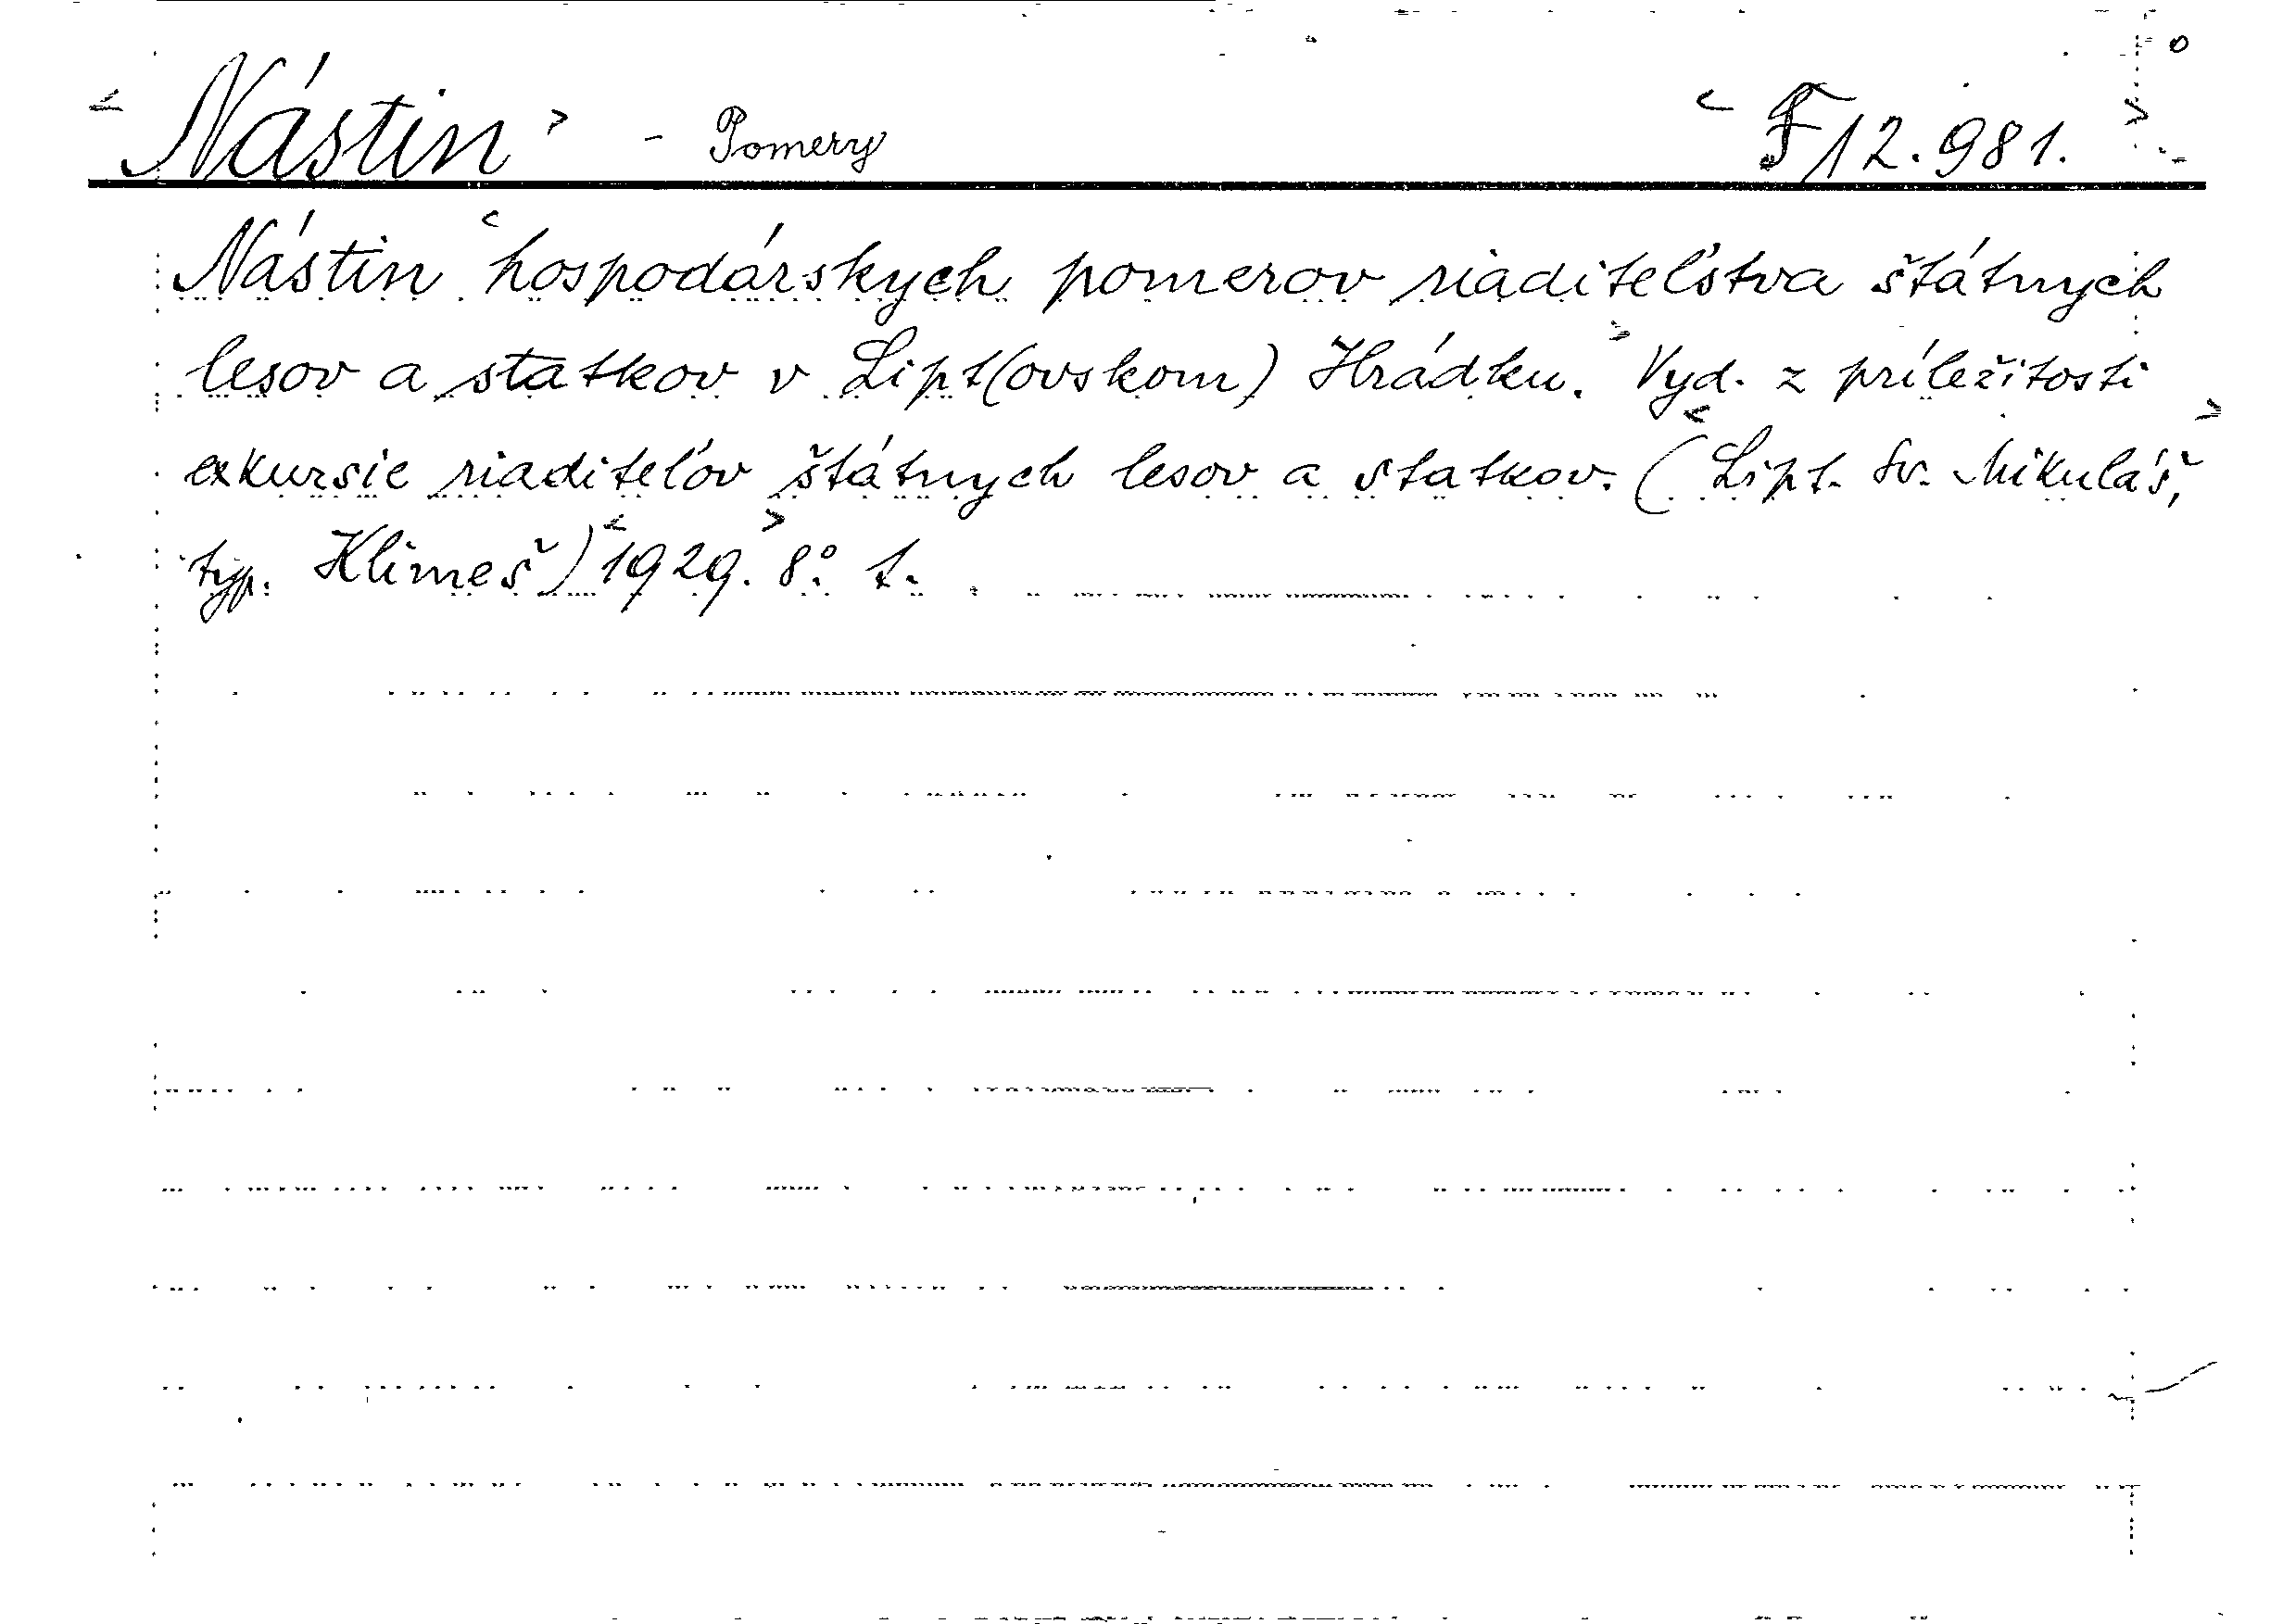 <Nástin> - Pomery <F 12.981.>
Nástin <hospodárskych pomerov riaditeľstva štátnych
lesov a statkov v Lipt(ovskom) Hrádku.> Vyd. z príležitosti
exkursie riaditeľov štátnych lesov a statkov. (<Lipt. Sv. Mikuláš,>
typ. Klimeš) <1929.> 8°. 1.